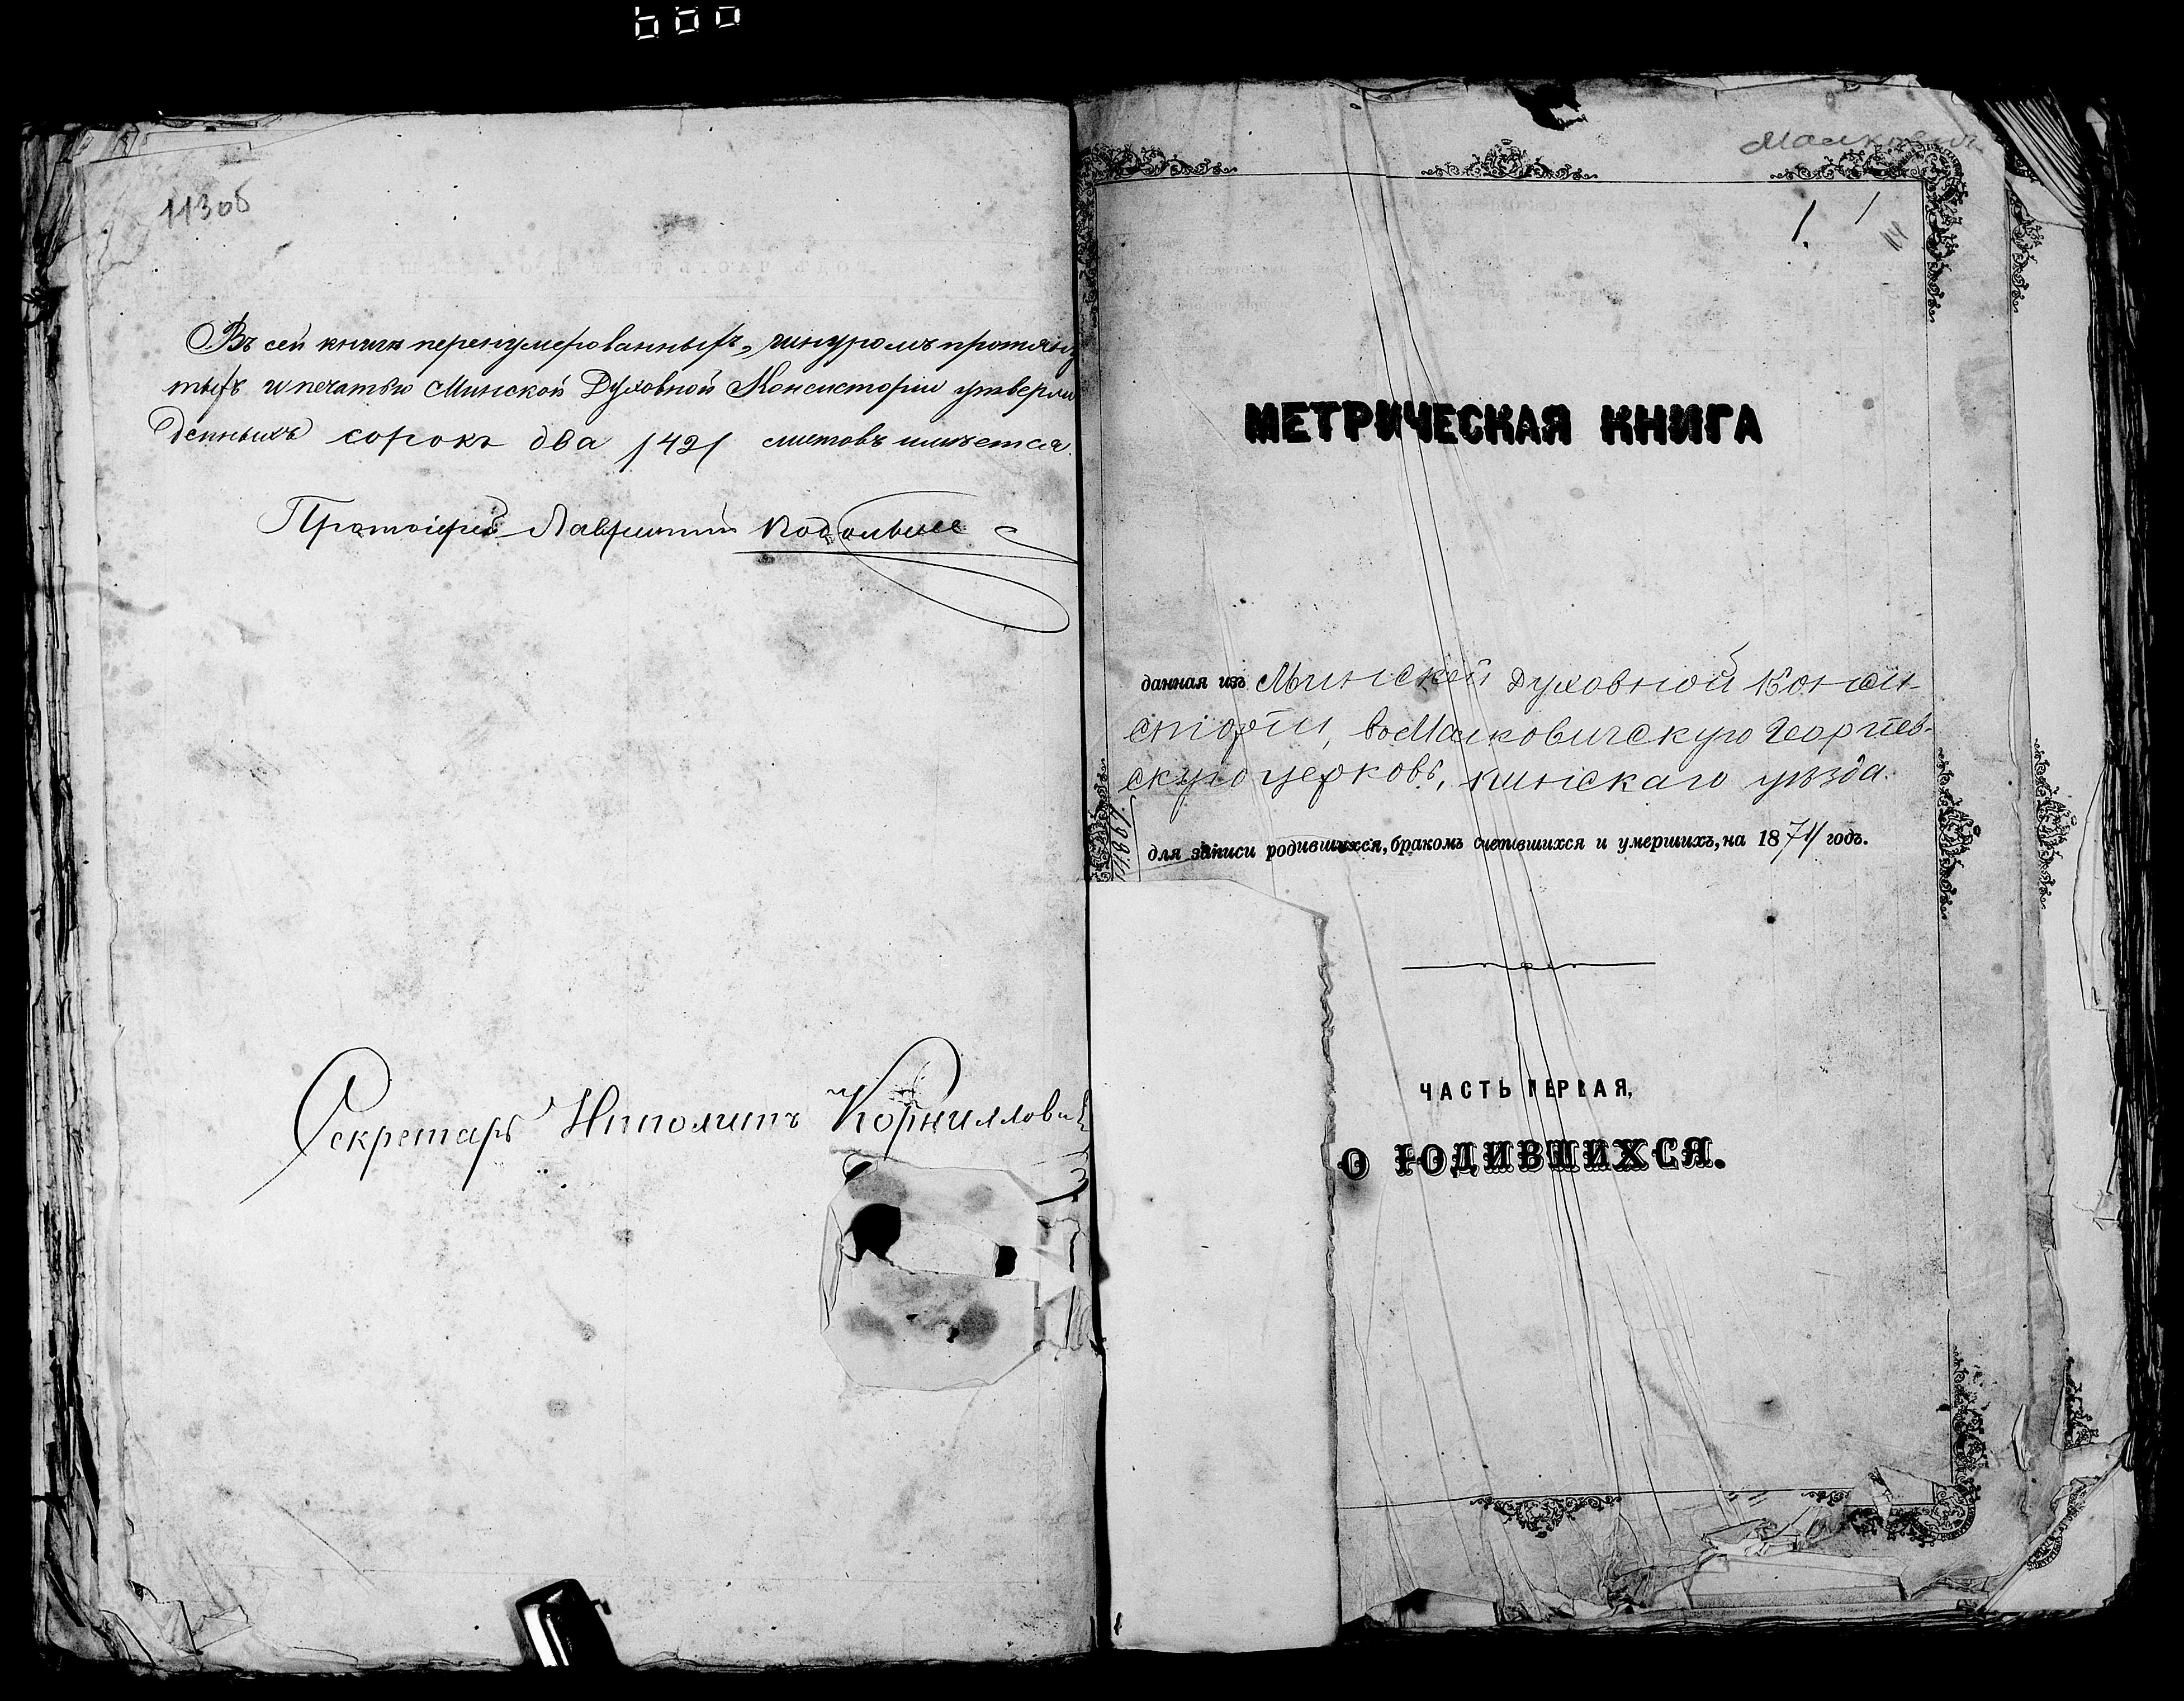 113об
Въ сей книгѣ перенумерованныхъ, шнуромъ протяну
тыхъ и печатью Минской Духовной Консисторіи утверж
денныхъ сорокъ два /42/ листовъ имѣется.
Протоіерей Лаврентій
Секретарь Ипполитъ Корнилови
Малковичи
1. 1
114
МЕТРИЧЕСКАЯ КНИГА
данная изъ Минской Духовной Конси-
сторіи, во Малковичскую Георгіев-
скую церковь, пинскаго уѣзда.
для записи родившихся, бракомъ счетавшихся и умершихъ, на 1874 годъ.
ЧАСТЬ ПЕРВАЯ,
О РОДИВШИХСЯ.